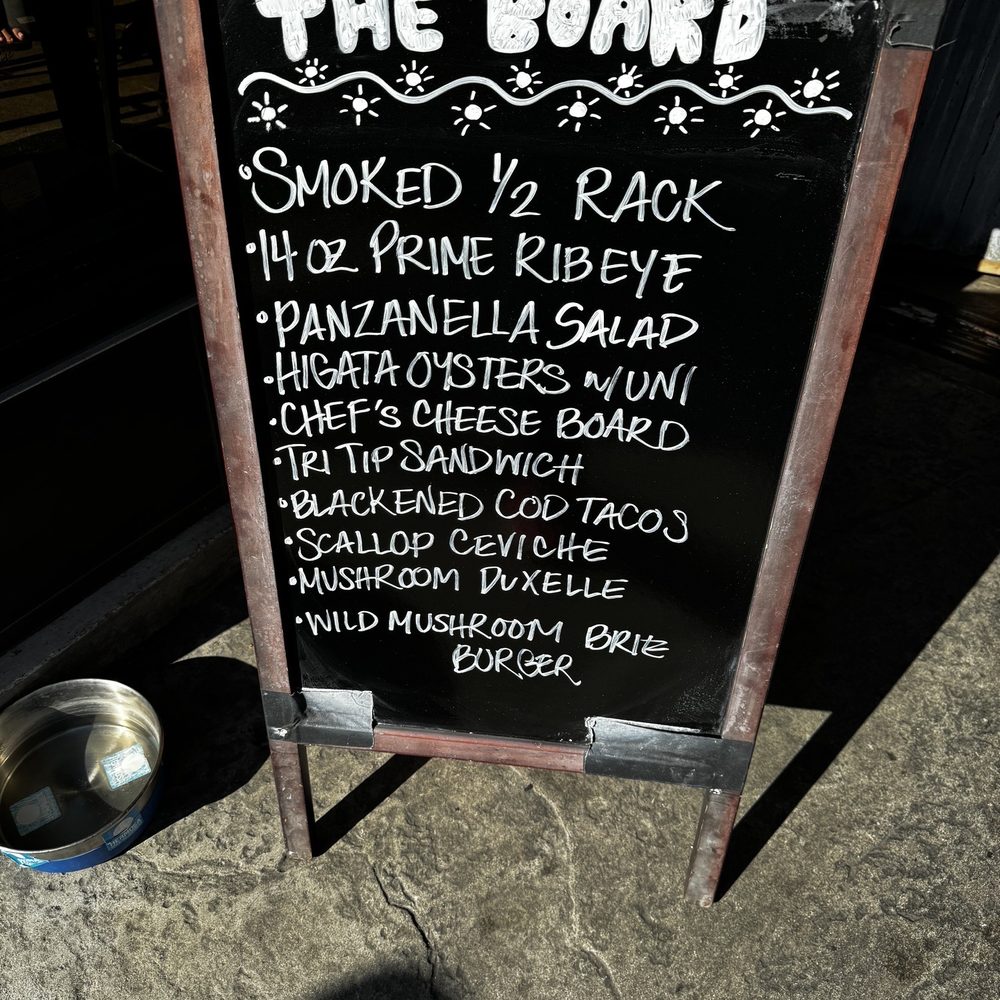 THE BOARD
•SMOKED 1/2 RACK
•14 OZ PRIME RIBEYE
•PANZANELLA SALAD
•HIGATA OYSTERS W/UNI
•CHEF'S CHEESE BOARD
•TRI TIP SANDWICH
•BLACKENED COD TACOS
•SCALLOP CEVICHE
•MUSHROOM DUXELLE
•WILD MUSHROOM BRIE
BURGER